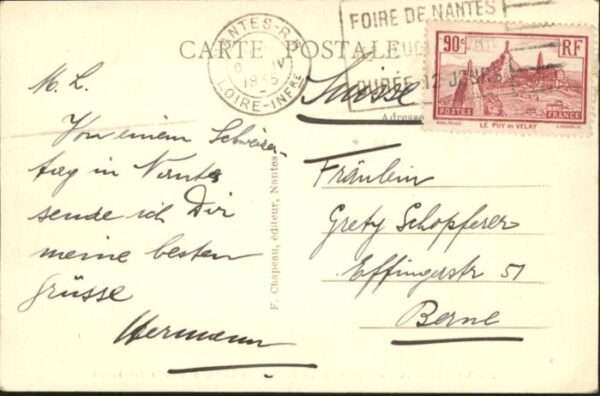 CARTE POSTALE
NANTES-R.P.
1935
LOIRE-INFRE
FOIRE DE NANTES
DURÉE 12 JOURS
90c RF
POSTES FRANCE
LE PUY EN VELAY
Suisse
Adresse
M. L.
Von einem Schweizer-
tag in Nantes
sende ich Dir
meine besten
Grüsse
Hermann
F. Chapeau, éditeur, Nantes
Fräulein
Grety Schopferer
Effingerstr 51
Berne